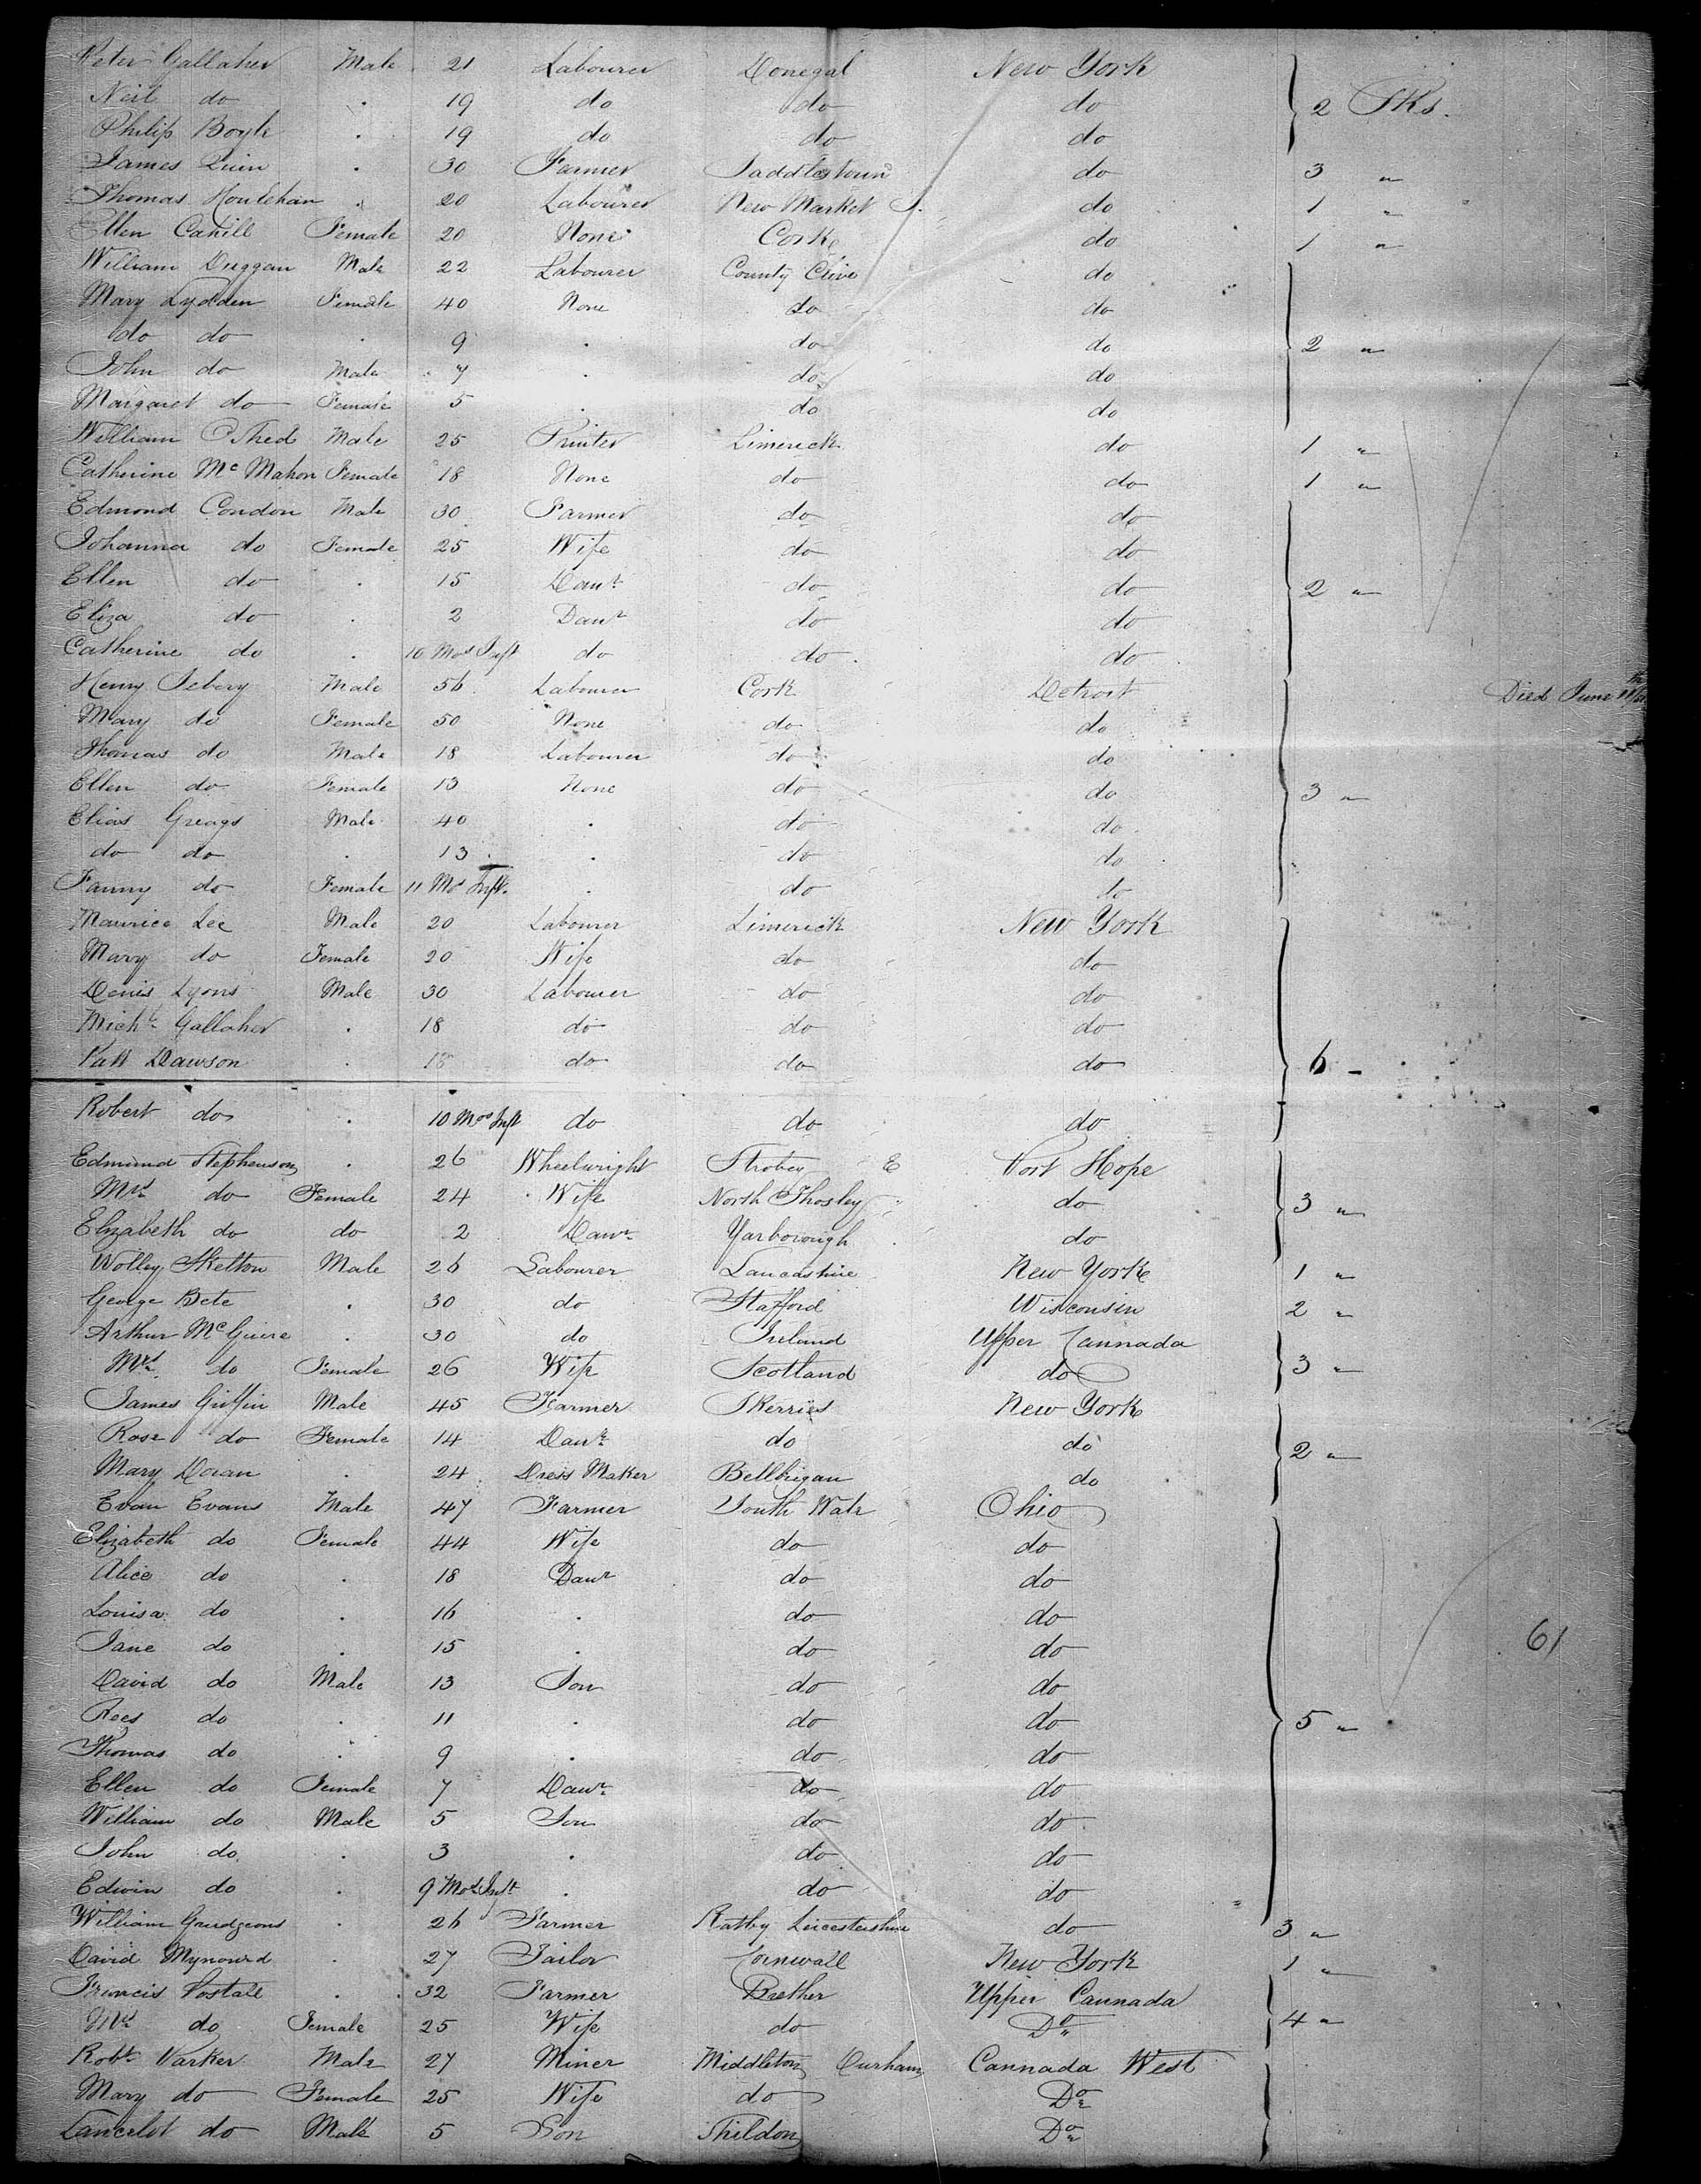 Peter Gallaher Male 21 Labourer Donegal New York
Neil do . 19 do do do 2 Pks.
Philip Boyle . 19 do do do
James Quin . 30 Farmer Saddlestown do 3 "
Thomas Houlehan . 20 Labourer New Market do 1 "
Ellen Cahill Female 20 None Cork do 1 "
William Duggan Male 22 Labourer County Clive do
Mary Lydden Female 40 None do do
do do . 9 . do do 2 "
John do Male 7 . do do
Margaret do Female 5 . do do
William OShed Male 25 Printer Limerick do 1 "
Catherine Mc Mahon Female 18 None do do 1 "
Edmond Condon Male 30 Farmer do do
Johanna do Female 25 Wife do do
Ellen do . 15 Daur do do 2 "
Eliza do . 2 Daur do do
Catherine do . 10 Mos Inft do do do
Henry Male 56 Labourer Cork Detroit Died June
Mary do Female 50 None do do
Thomas do Male 18 Labourer do do
Ellen do Female 13 None do do 3 "
Elias Greags Male 40 . do do
do do . 13 . do do
Fanny do Female 11 Mos Inft . do do
Maurice Lee Male 20 Labourer Limerick New York
Mary do Female 20 Wife do do
Denis Lyons Male 30 Labourer do do
Michl Gallaher . 18 do do do
Patt Dawson . 18 do do do 6 "
Robert do . 10 Mos Inft do do do
Edmund Stephenson . 26 Wheelwright E Port Hope
Mrs do Female 24 Wife North Thosley do 3 "
Elizabeth do do 2 Daur Yarborough do
Wolley Skelton Male 26 Labourer Lancashire New York 1 "
George Bete . 30 do Stafford Wisconsin 2 "
Arthur McGuire . 30 do Ireland Upper Cannada
Mrs do Female 26 Wife Scotland do 3 "
James Griffin Male 45 Farmer Skerries New York
Rose do Female 14 Daur do do 2 "
Mary Doran . 24 Dress Maker Bellbrigan do
Evan Evans Male 47 Farmer South Wale Ohio
Elizabeth do Female 44 Wife do do
Alice do . 18 Daur do do
Louisa do . 16 . do do
Jane do . 15 . do do 61
David do Male 13 Son do do
Rees do . 11 . do do 5 "
Thomas do . 9 . do do
Ellen do Female 7 Daur do do
William do Male 5 Son do do
John do . 3 . do do
Edwin do . 9 Mos Inft . do do
William Gaudgeons . 26 Farmer Ratby Leicestershire do 3 "
David Mynourd . 27 Tailor Cornwall New York 1 "
Francis Postale . 32 Farmer Upper Cannada
Mrs do Female 25 Wife do Do 4 "
Robt Parker Male 27 Miner Middleton Durham Cannada West
Mary do Female 25 Wife do Do
Lancelot do Male 5 Son Shildon Do